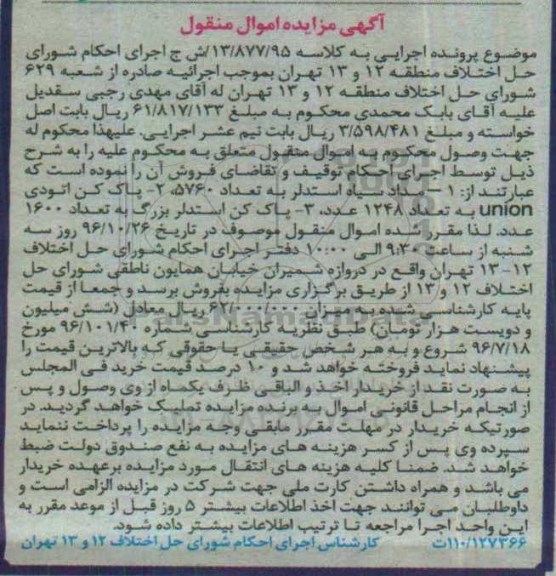 آگهی مزایده اموال منقول
موضوع پرونده اجرایی به کلاسه ۱۳/۸۷۷/۹۵/ش ج اجرای احکام شورای
حل اختلاف منطقه ۱۲ و ۱۳ تهران بموجب اجرائیه صادره از شعبه ۶۲۹
شورای حل اختلاف منطقه ۱۲ و ۱۳ تهران له آقای مهدی رجبی سقدیل
علیه آقای بابک محمدی محکوم به مبلغ ۶۱/۸۱۷/۱۳۳ ریال بابت اصل
خواسته و مبلغ ۳/۵۹۸/۴۸۱ ریال بابت نیم عشر اجرایی. علیهذا محکوم له
جهت وصول محکوم به اموال منقول متعلق به محکوم علیه را به شرح
ذیل توسط اجرای احکام توقیف و تقاضای فروش آن را نموده است که
عبارتند از: ۱- مداد سیاه استدلر به تعداد ۵۷۶۰، ۲- پاک کن اتودی
union به تعداد ۱۲۴۸ عدد، ۳- پاک کن استدلر بزرگ به تعداد ۱۶۰۰
عدد. لذا مقرر شده اموال منقول موصوف در تاریخ ۹۶/۱۰/۲۶ روز سه
شنبه از ساعت ۹:۳۰ الی ۱۰:۰۰ دفتر اجرای احکام شورای حل اختلاف
۱۲-۱۳ تهران واقع در دروازه شمیران خیابان همایون ناطقی شورای حل
اختلاف ۱۲ و ۱۳ از طریق برگزاری مزایده بفروش برسد و جمعا از قیمت
پایه کارشناسی شده به میزان ریال معادل (شش میلیون
و دویست هزار تومان) طبق نظریه کارشناسی شماره ۹۶/۱۰۱/۴۰ مورخ
۹۶/۷/۱۸ شروع و به هر شخص حقیقی یا حقوقی که بالاترین قیمت را
پیشنهاد نماید فروخته خواهد شد و ۱۰ درصد قیمت خرید فی المجلس
به صورت نقد از خریدار اخذ و الباقی ظرف یکماه از وی وصول و پس
از انجام مراحل قانونی اموال به برنده مزایده تملیک خواهد گردید. در
صورتیکه خریدار در مهلت مقرر مابقی وجه مزایده را پرداخت ننماید
سپرده وی پس از کسر هزینه های مزایده به نفع صندوق دولت ضبط
خواهد شد. ضمنا کلیه هزینه های انتقال مورد مزایده برعهده خریدار
می باشد و همراه داشتن کارت ملی جهت شرکت در مزایده الزامی است و
داوطلبان می توانند جهت اخذ اطلاعات بیشتر ۵ روز قبل از موعد مقرر به
این واحد اجرا مراجعه تا ترتیب اطلاعات بیشتر داده شود.
۱۱۰/۱۲۷۳۶۶ت کارشناس اجرای احکام شورای حل اختلاف ۱۲ و ۱۳ تهران